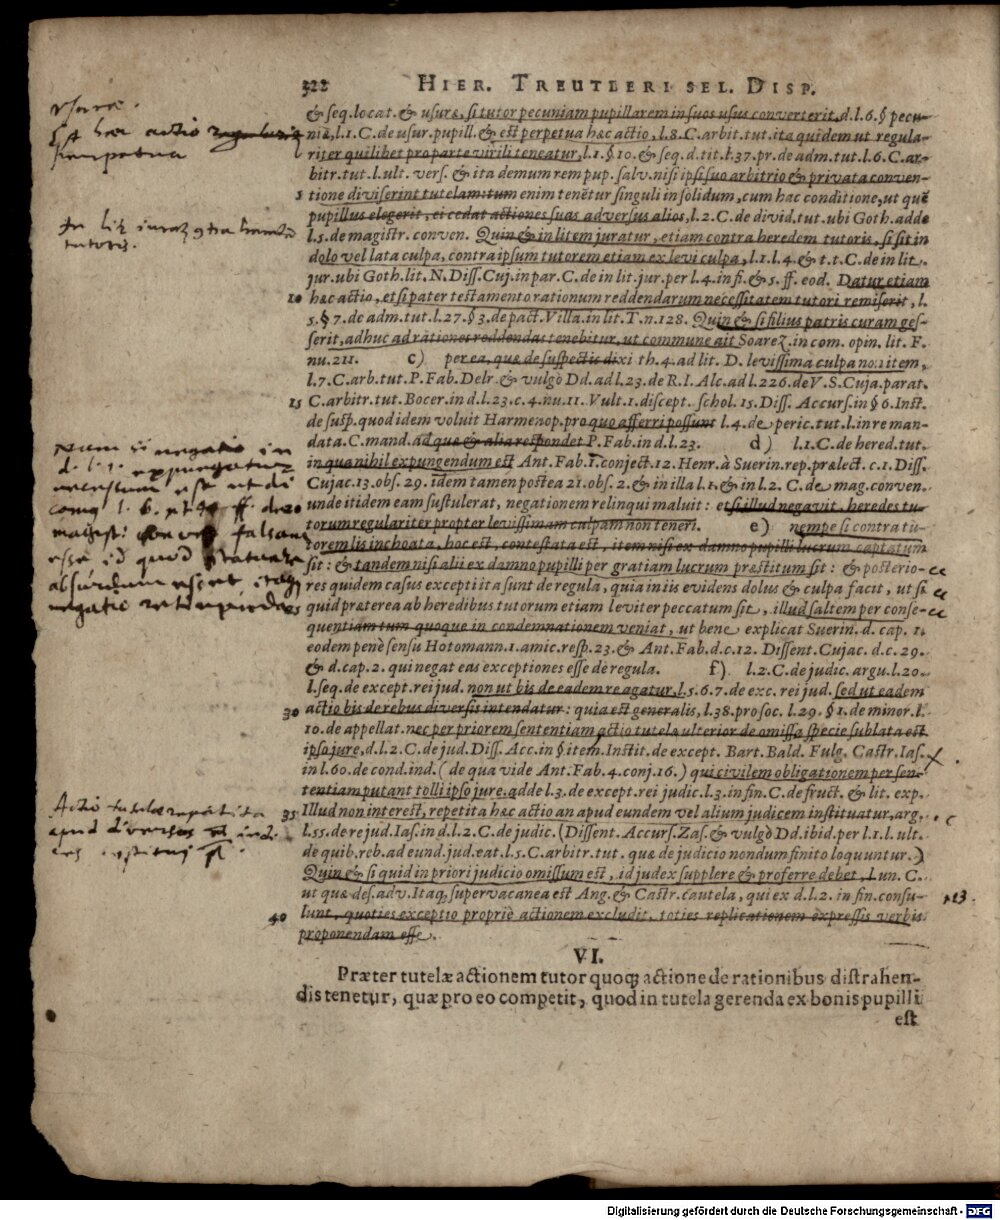 322 HIER. TREUTLERI SEL. DISP.
& seq. locat. & usuræ, si tutor pecuniam pupillarem in suos usus converterit, d.l.6.§ pecu-
niæ, l.1.C. de usur. pupill. & est perpetua hæc actio, l.8.C. arbit. tut. ita quidem ut regula-
riter quilibet pro parte virili teneatur, l.1.§.10. & seq. d. tit. l.37. pr. de adm. tut. l.6.C. ar-
bitr. tut. l. ult. vers. & ita demum rem pup. salv. nisi ipsi suo arbitrio & privata conven-
5 tione diviserint tutelam: tum enim tenētur singuli in solidum, cum hac conditione, ut quē
pupillus elegerit, ei cedat actiones suas adversus alios, l.2.C. de divid. tut. ubi Goth. adde
l.5. de magistr. conven. Quin & in litem juratur, etiam contra heredem tutoris, si sit in
dolo vel lata culpa, contra ipsum tutorem etiam ex levi culpa, l.1.l.4. & t.t.C. de in lit.
jur. ubi Goth. lit. N. Diss. Cuj. in par. C. de in lit. jur. per l.4. in fi. & 5. ff. eod. Datur etiam
10 hæc actio, etsi pater testamento rationum reddendarum necessitatem tutori remiserit, l.
5.§7. de adm. tut. l.27.§3. de pact. Villa. in lit. T. n.128. Quin & si filius patris curam ges-
serit, adhuc ad rationes reddendas tenebitur, ut commune ait Soarez. in com. opin. lit. F.
nu. 211. c) per ea, quæ de suspectis dixi th. 4. ad lit. D. levissima culpa no: item,
l.7.C. arb. tut. P. Fab. Delr. & vulgò Dd. ad l.23. de R.I. Alc. ad l.226. de V.S. Cuja. parat.
15 C. arbitr. tut. Bocer. in d.l.23.c.4.nu.11. Vult. 1. discept. schol. 15. Diss. Accurs. in § 6. Inst.
de susp. quod idem voluit Harmenop. pro quo afferri possunt l.4. de peric. tut. l. in re man-
data. C. mand. ad quæ & alia respondet P. Fab. in d.l.23. d) l.1.C. de hered. tut.
in qua nihil expungendum est Ant. Fab. 1. conject. 12. Henr. à Suerin. rep. prælect. c.1. Diss.
Cujac. 13. obs. 29. idem tamen postea 21. obs. 2. & in illa l.1. & in l.2. C. de mag. conven.
20 unde itidem eam sustulerat, negationem relinqui maluit: etsi illud negavit, heredes tu-
torum regulariter propter levissimam culpam non teneri. e) nempe si contra tu-
torem lis inchoata, hoc est, contestata est, item nisi ex damno pupilli lucrum captatum
sit: & tandem nisi alii ex damno pupilli per gratiam lucrum præstitum sit: & posterio-
res quidem casus excepti ita sunt de regula, quia in iis evidens dolus & culpa facit, ut si
25 quid præterea ab heredibus tutorum etiam leviter peccatum sit, illud saltem per conse-
quentiam tum quoque in condemnationem veniat, ut bene explicat Suerin. d. cap. 1.
eodem penè sensu Hotomann. 1. amic. resp. 23. & Ant. Fab. d.c.12. Dissent. Cujac. d.c.29.
& d. cap. 2. qui negat eas exceptiones esse de regula. f) l.2.C. de judic. argu. l.20.
l. seq. de except. rei jud. non ut bis de eadem re agatur, l.5.6.7. de exc. rei jud. sed ut eadem
30 actio bis de rebus diversis intendatur: quia est generalis, l.38. pro soc. l.29.§1. de minor. l.
10. de appellat. nec per priorem sententiam actio tutela ulterior de omissa specie sublata est
ipso jure, d.l.2.C. de jud. Diss. Acc. in § item. Instit. de except. Bart. Bald. Fulg. Castr. Ias.
in l.60. de cond. ind. (de qua vide Ant. Fab. 4. conj. 16.) qui civilem obligationem per sen-
tentiam putant tolli ipso jure. adde l.3. de except. rei judic. l.3. in fin. C. de fruct. & lit. exp.
35 Illud non interest, repetita hæc actio an apud eundem vel alium judicem instituatur, arg.
l.55. de re jud. Ias. in d.l.2.C. de judic. (Dissent. Accurs. Zas. & vulgò Dd. ibid. per l.1.l. ult.
de quib. reb. ad eund. jud. eat. l.5.C. arbitr. tut. quæ de judicio nondum finito loquuntur.)
Quin & si quid in priori judicio omissum est, id judex supplere & proferre debet, l. un. C.
ut quæ des. adv. Itaq, supervacanea est Ang. & Castr. cautela, qui ex d.l.2. in fin. consu-
40 lunt, quoties exceptio propriè actionem excludit, toties replicationem expressis verbis
proponendam esse.
VI.
Præter tutelæ actionem tutor quoq; actione de rationibus distrahen-
dis tenetur, quæ pro eo competit, quod in tutela gerenda ex bonis pupilli
est
usuræ.
Est hæc actio
perpetua
In lit. contra
tutoris.
Num si negatio in
d. l. 1. expungatur
falsum
esse id quod
absurdum esset, itaq;
negatio
Actio tutelæ repetita
apud diversos
Digitalisierung gefördert durch die Deutsche Forschungsgemeinschaft - DFG